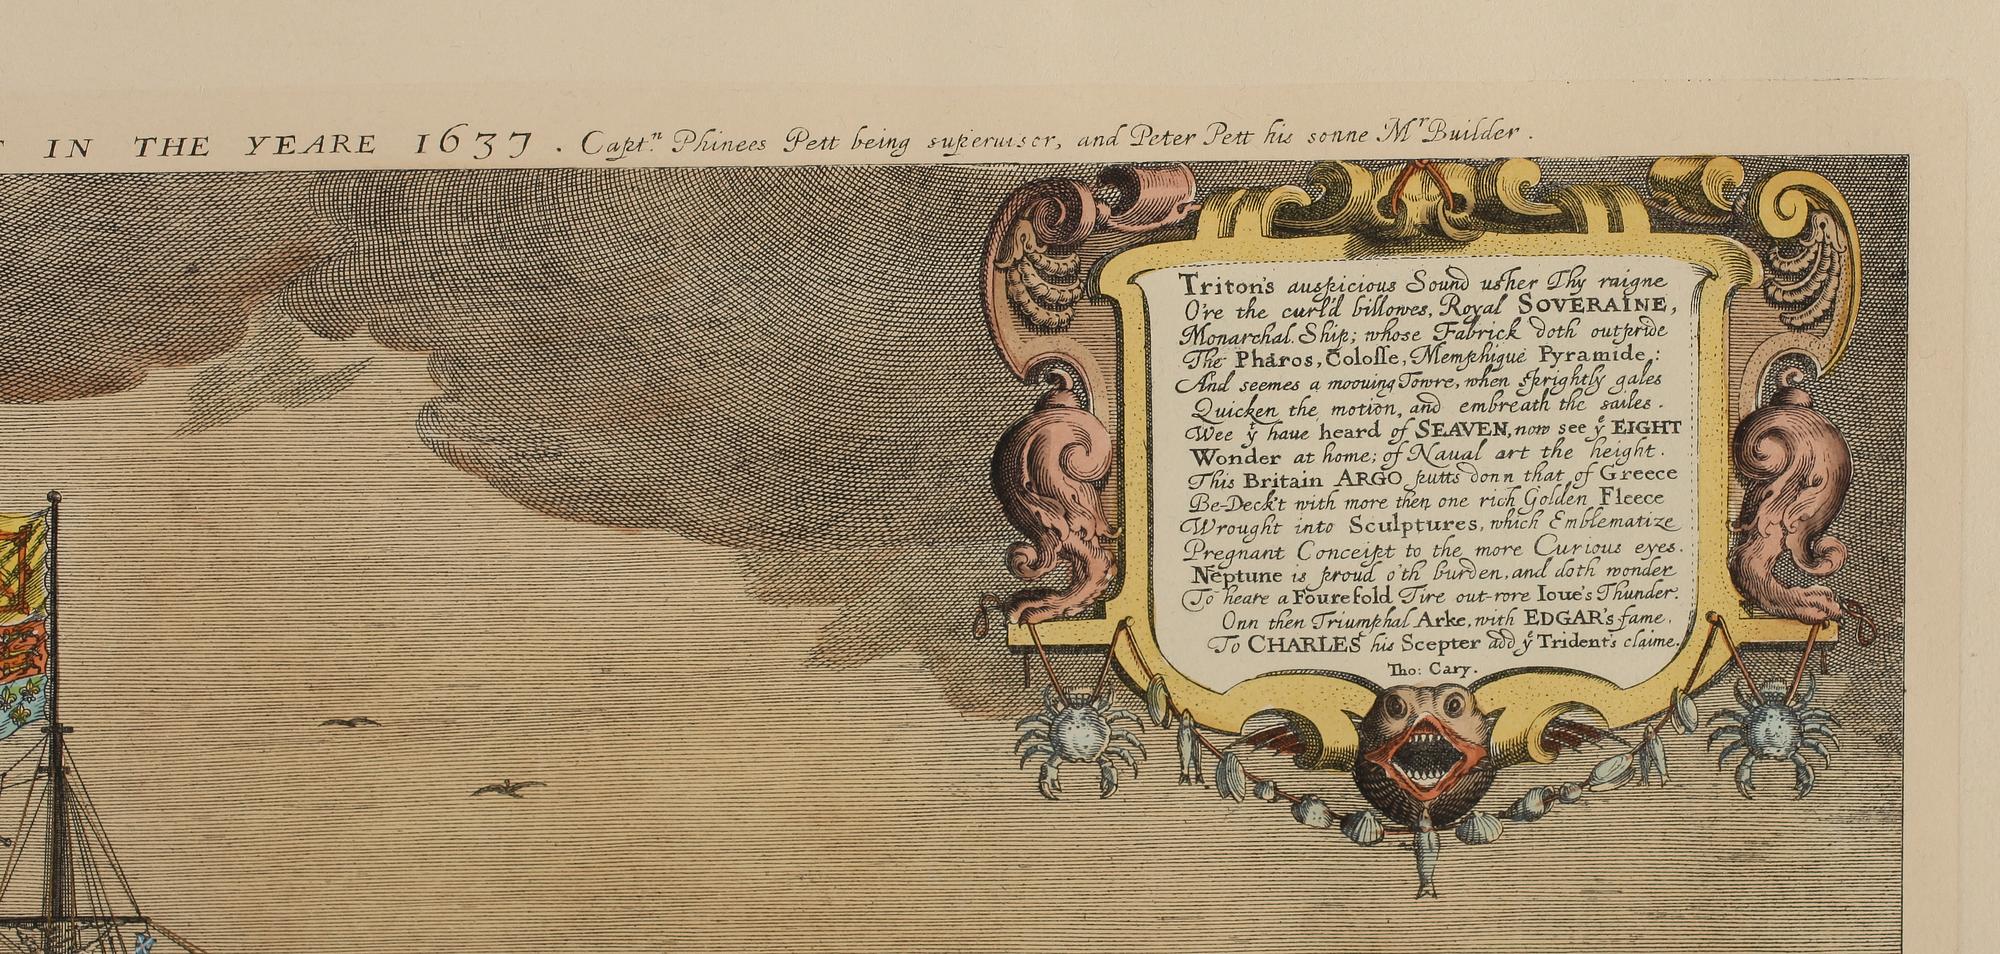 IN THE YEARE 1637. Captⁿ. Phinees Pett being superuisor, and Peter Pett his sonne Mʳ Builder.
Triton's auspicious Sound usher Thy raigne
O're the curl'd billowes, Royal SOVERAINE,
Monarchal Ship; whose Fabrick doth outpride
The Pharos, Colosse, Memphique Pyramide:
And seemes a moouing Towre, when sprightly gales
Quicken the motion, and embreath the sailes.
Wee yᵗ haue heard of SEAVEN, now see yᵉ EIGHT
Wonder at home; of Naual art the height.
This Britain ARGO putts down that of Greece
Be-Deck't with more then one rich Golden Fleece
Wrought into Sculptures, which Emblematize
Pregnant Conceipt to the more Curious eyes.
Neptune is proud o'th burden, and doth wonder
To heare a Fourefold Tire out-rore Ioue's Thunder.
Onn then Triumphal Arke, with EDGAR's fame,
To CHARLES his Scepter add yᵉ Trident's claime.
Tho: Cary.